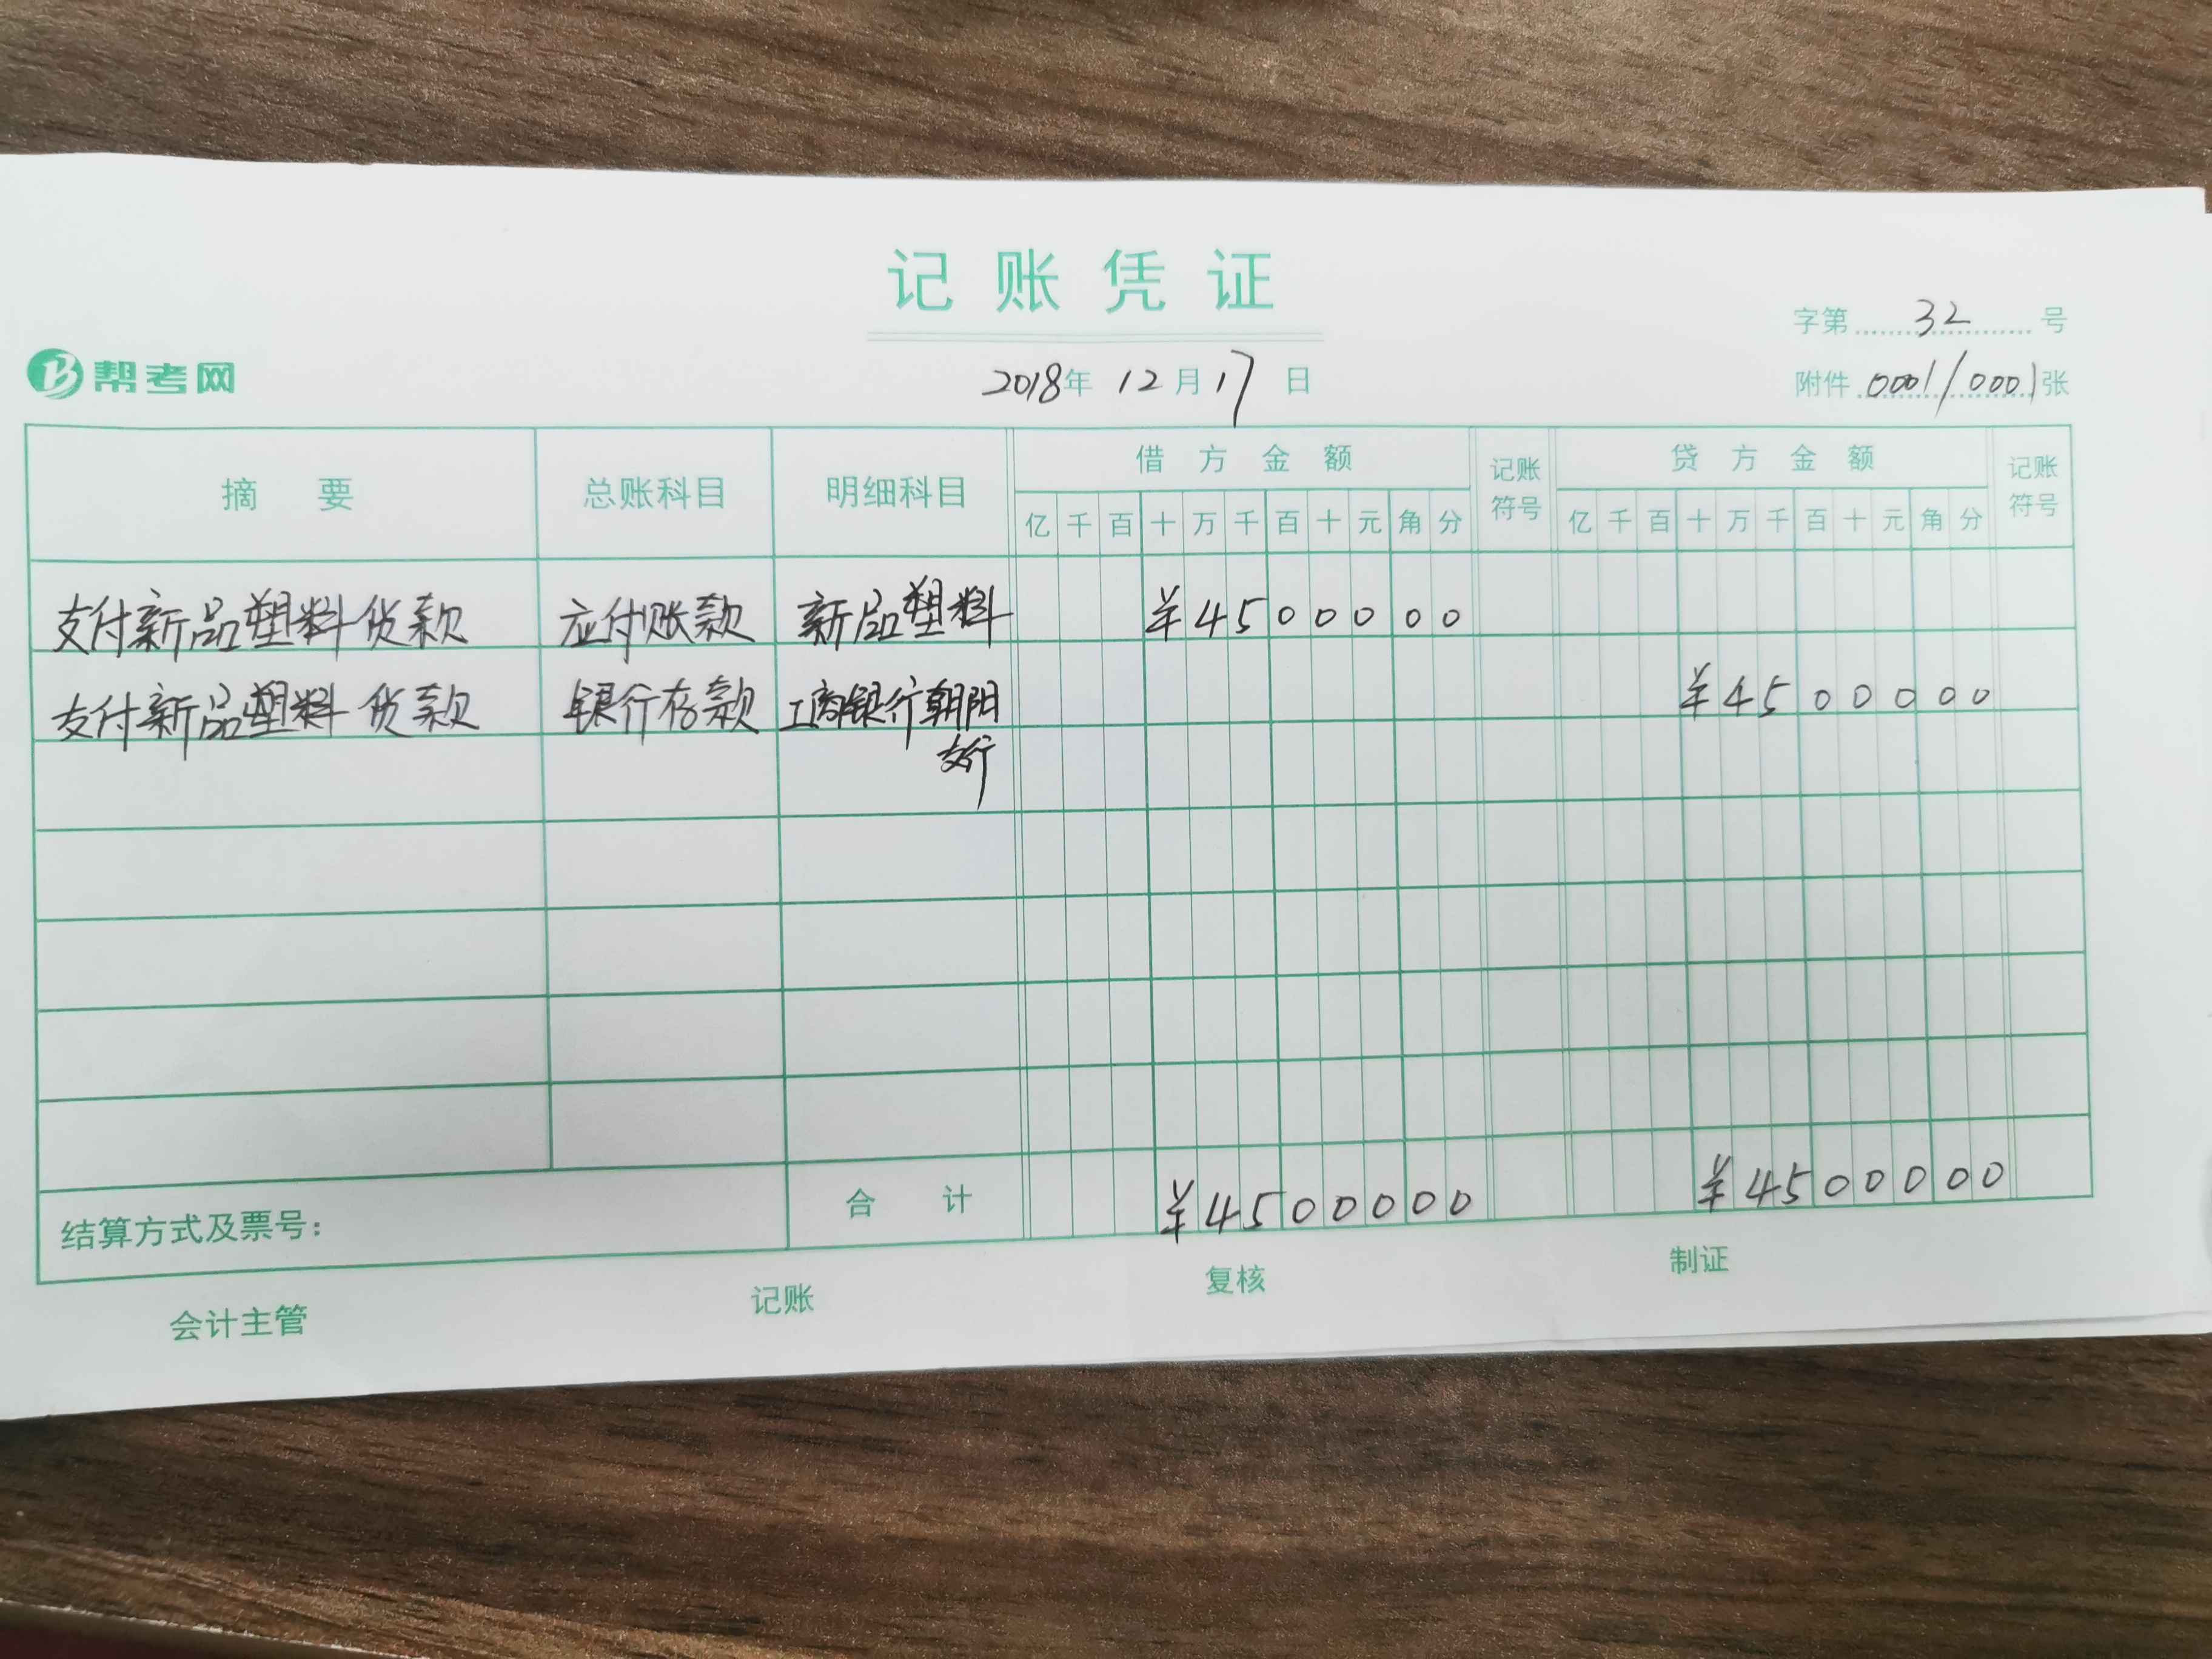 记账凭证
字第 32 号
帮考网
2018年 12月 17日
附件 0001/0001张
摘要 总账科目 明细科目 借方金额 记账符号 贷方金额 记账符号
亿 千 百 十 万 千 百 十 元 角 分 亿 千 百 十 万 千 百 十 元 角 分
支付新品塑料货款 应付账款 新品塑料 ¥4500000
支付新品塑料货款 银行存款 工商银行朝阳 ¥4500000
支行
结算方式及票号: 合计 ¥4500000 ¥4500000
会计主管 记账 复核 制证